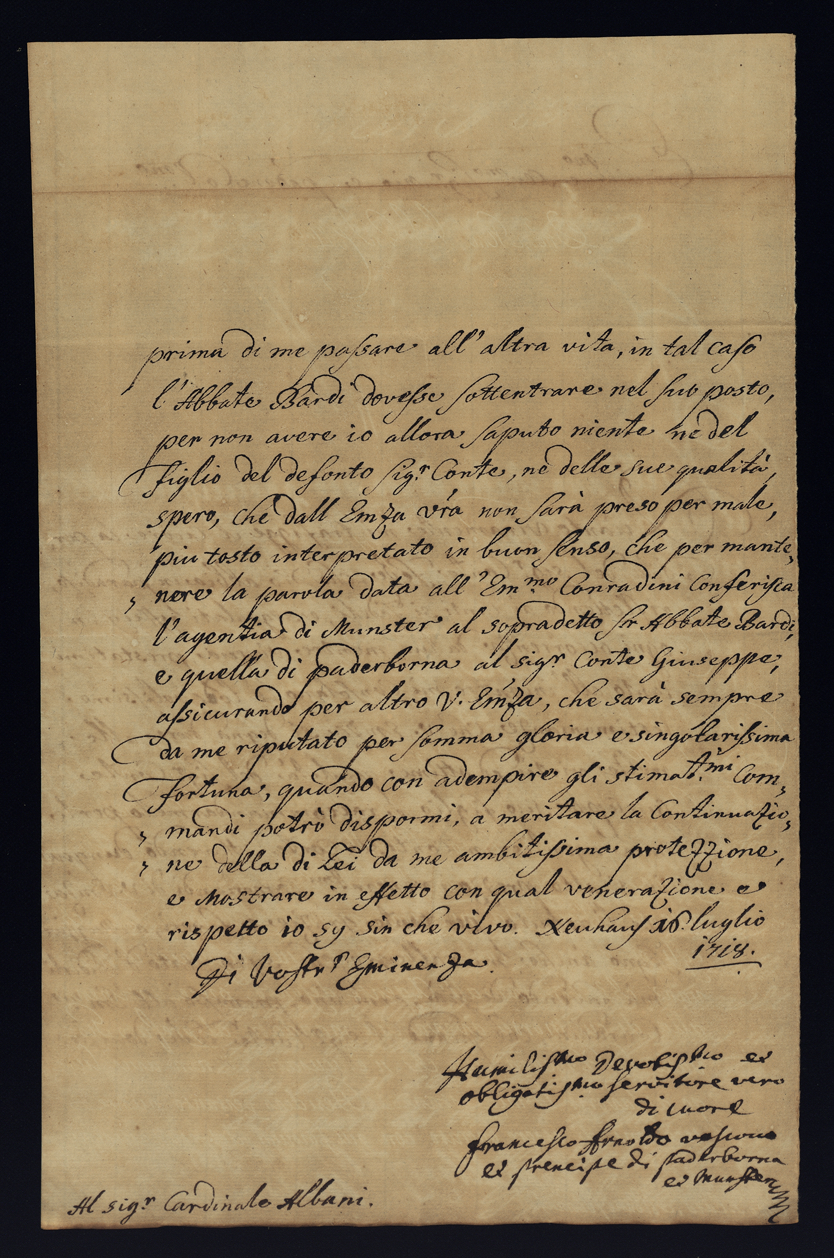 prima di me passare all'altra vita, in tal caso
l'Abbate Bardi dovesse sottentrare nel suo posto,
per non avere io allora saputo niente ne del
figlio del defonto Sigr. Conte, ne delle sue qualità,
spero, che dall Emza vra non sarà preso per male,
piu tosto interpretato in buon senso, che per mante-
nere la parola data all'Emmo Conradini Conferisca
l'agentia di Munster al sopradetto sr Abbate Bardi,
e quella di paderborna al sigr Conte Giuseppe,
assicurando per altro V. Emza, che sarà sempre
da me riputato per somma gloria e singolarissima
fortuna, quando con adempire gli stimatmi Com-
mandi potrò dispormi, a meritare la Continuazio-
ne della di Lei da me ambitissima protezzione,
e Mostrare in effetto con qual venerazione e
rispetto io sy sin che vivo. Neuhaus 16. luglio
1718.
Di Vostra Eminenza.
Humilissmo Devotissmo et
obligatissmo servitore vero
di cuore
francesco Arnoldo vescovo
et prencipe di paderborna
et Munster
Al sigr Cardinale Albani.